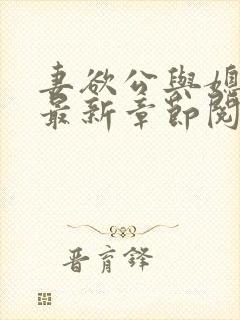 妻欲公與媳
最新章節閱
晋育鋒